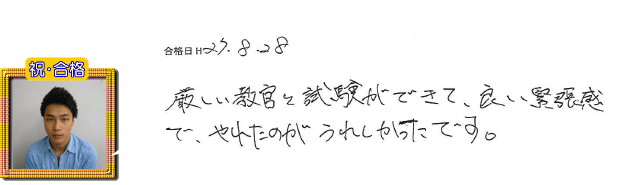 祝・合格
合格日 H27.8.28
厳しい教官と試験ができて、良い緊張感
で、やれたのがうれしかったです。